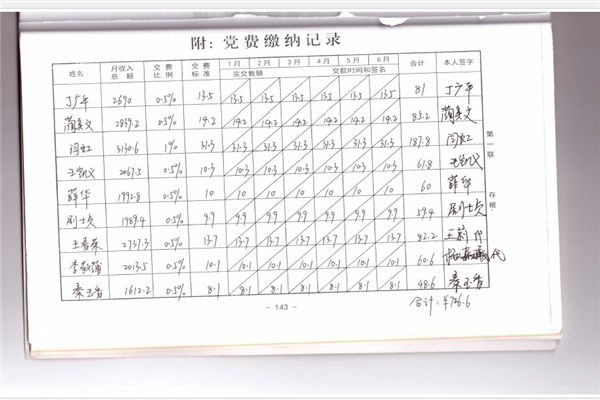 附：党费缴纳记录
姓名 月收入总额 交费比例 交费标准 1月 2月 3月 4月 5月 6月 合计 本人签字
实交数额 交款时间和签名
丁广平 2690 0.5% 13.5 13.5 13.5 13.5 13.5 13.5 13.5 81 丁广平
蔺美文 2839.2 0.5% 14.2 14.2 14.2 14.2 14.2 14.2 14.2 85.2 蔺美文
闫虹 3130.6 1% 31.3 31.3 31.3 31.3 31.3 31.3 31.3 187.8 闫虹
2067.5 0.5% 10.3 10.3 10.3 10.3 10.3 10.3 10.3 61.8
薛华 1992.8 0.5% 10 10 10 10 10 10 10 60 薛华
1989.4 0.5% 9.9 9.9 9.9 9.9 9.9 9.9 9.9 59.4
王春荣 2737.3 0.5% 13.7 13.7 13.7 13.7 13.7 13.7 13.7 82.2 代
李敬蒲 2013.5 0.5% 10.1 10.1 10.1 10.1 10.1 10.1 10.1 60.6 代
秦玉香 1612.2 0.5% 8.1 8.1 8.1 8.1 8.1 8.1 8.1 48.6 秦玉香
第一联 存根
- 143 -
合计：¥726.6